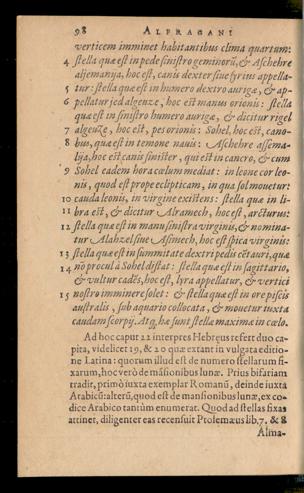 98 ALFRAGANI
verticem imminet habitantibus clima quartum:
4 stella quæ est in pede sinistro geminorũ, & Aschehre
aljemanija, hoc est, canis dexter siue syrius appella-
5 tur: stella quæ est in humero dextro aurigæ, & ap-
6 pellatur jed algeuze, hoc est manus orionis: stella
quæ est in sinistro humero aurigæ, & dicitur rigel
7 algeuze, hoc est, pes orionis: Sohel, hoc est, cano-
8 bus, quæ est in temone nauis: Aschehre assema-
lija, hoc est canis sinister, qui est in cancro, & cum
9 Sohel eadem hora cœlum mediat: in leone cor leo-
nis, quod est prope eclipticam, in qua sol mouetur:
10 cauda leonis, in virgine existens: stella quæ in li-
11 bra est, & dicitur Alramech, hoc est, arcturus:
12 stella quæ est in manu sinistra virginis, & nomina-
tur Alahzel siue Asimech, hoc est spica virginis:
13 stella quæ est in summitate dextri pedis cẽtauri, quæ
14 nõ procul à Sohel distat: stella quæ est in sagittario,
& vultur cadẽs, hoc est, lyra appellatur, & vertici
15 nostro imminere solet: & stella quæ est in ore piscis
australis, sub aquario collocata, & mouetur iuxta
caudam scorpij. Atq; hæ sunt stellæ maximæ in cœlo.
Ad hoc caput 22 interpres Hebręus refert duo ca-
pita, videlicet 19, & 20 quæ extant in vulgata editio-
ne Latina: quorum illud est de numero stellarum fi-
xarum, hoc verò de mãsionibus lunæ. Prius bifariam
tradit, primò iuxta exemplar Romanũ, deinde iuxta
Arabicũ: alterũ, quod est de mansionibus lunæ, ex co-
dice Arabico tantùm enumerat. Quod ad stellas fixas
attinet, diligenter eas recensuit Ptolemæus lib. 7, & 8
Alma-